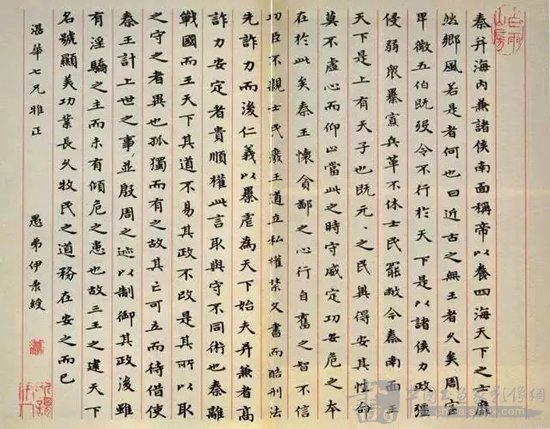 秦并海内兼諸侯南面稱帝以養四海天下之士靡
然鄉風若是者何也曰近古之無王者久矣周室
卑微五伯既殁令不行於天下是以諸侯力政强
侵弱眾暴寡兵革不休士民罷敝今秦南面王
天下是上有天子也既元〻之民冀得安其性命
莫不虚心而仰上當此之時守威定功安危之本
在於此矣秦王懷貪鄙之心行自奮之智不信
功臣不親士民廢王道立私權禁文書而酷刑法
先詐力而後仁義以暴虐為天下始夫并兼者高
詐力安定者貴順權此言取與守不同術也秦離
戰國而王天下其道不易其政不改是其所以取
之守之者異也孤獨而有之故其亡可立而待借使
秦王計上世之事並殷周之迹以制御其政後雖
有淫驕之主而未有傾危之患也故三王之建天下
名號顯美功業長久牧民之道務在安之而已
華七兄雅正
愚弟伊秉綬